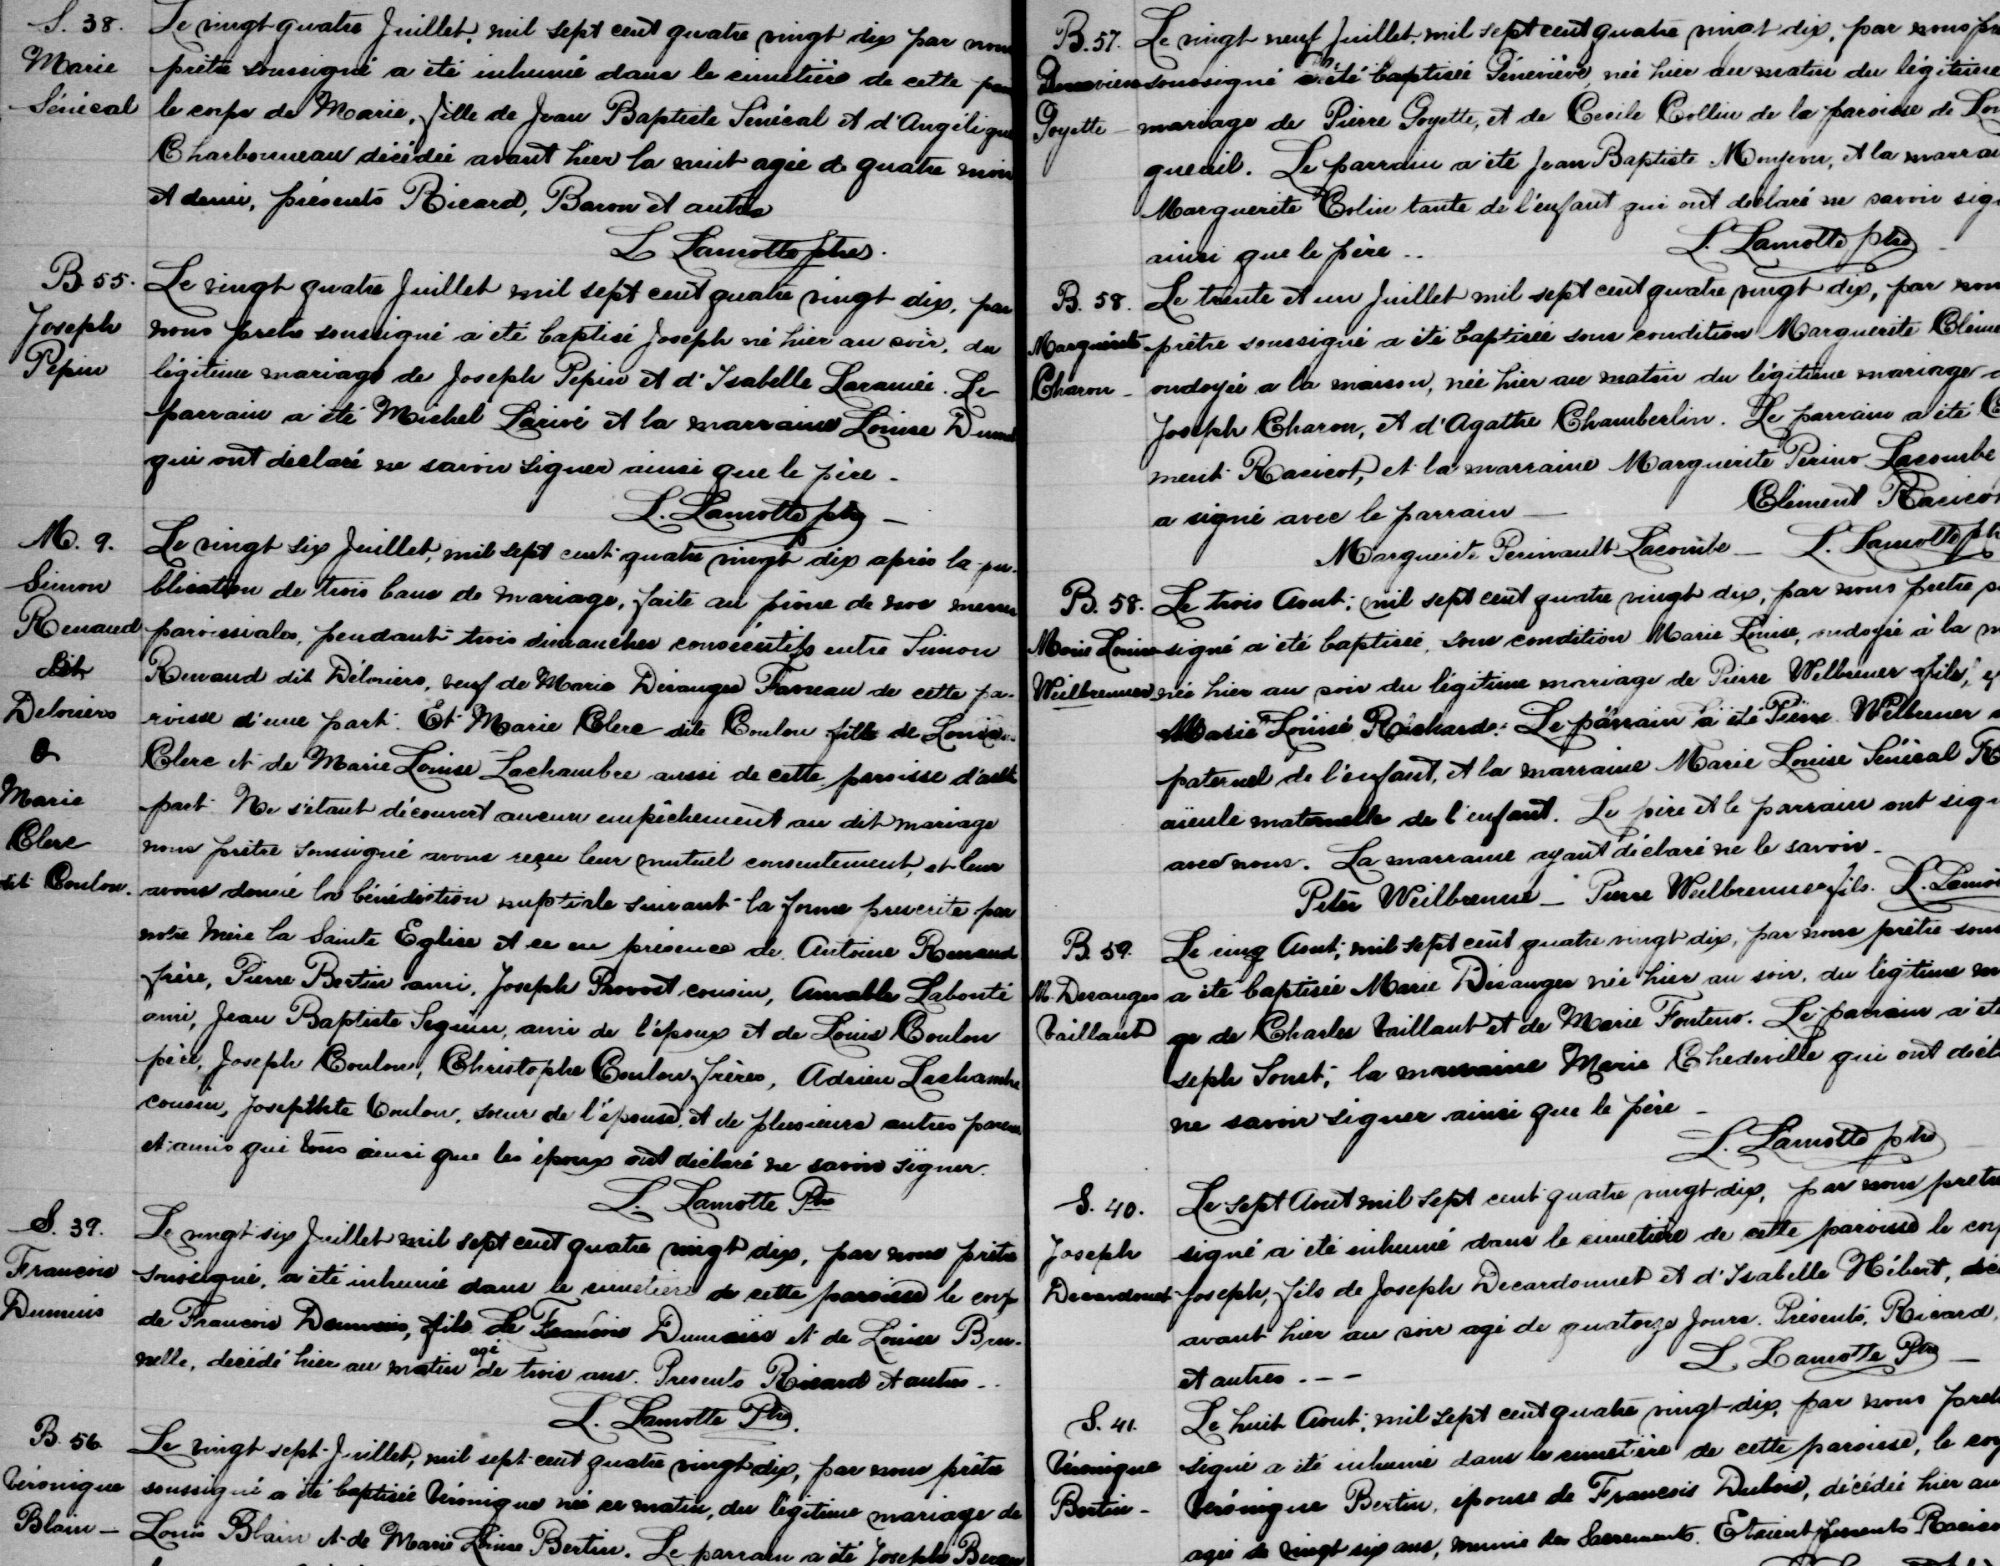 S. 38.
Marie
Sénécal
Le vingt quatre Juillet, mil sept cent quatre vingt dix par nous
prêtre soussigné a été inhumé dans le cimetière de cette
le corps de Marie, fille de Jean Baptiste Sénécal et d'Angélique
Charbonneau décédée avant hier la nuit agée de quatre mois
et demi, présents Ricard, Baron et autres
L Lamotte ptre.
B. 55.
Joseph
Pepin
Le vingt quatre Juillet mil sept cent quatre vingt dix, par
nous pretre soussigné a été baptisé Joseph né hier au soir, du
légitime mariage de Joseph Pepin et d'Isabelle Laramée. Le
parrain a été Michel Larivé et la marraine Louise
qui ont declaré ne savoir signer ainsi que le père -
L. Lamotte ptre -
M. 9.
Simon
Renaud
dit
Deloriers
&
Marie
Clerc
dit Coulon.
Le vingt six Juillet, mil sept cent quatre vingt dix après la pu-
blication de trois bans de mariage, faite au prône de nos messes
paroissiales, pendant trois dimanches consécutifs entre Simon
Renaud dit Déloriers, veuf de Marie Désanges Faveau de cette pa-
roisse d'une part. Et Marie Clerc dite Coulon fille de Louis
Clerc et de Marie Louise Lachambre aussi de cette paroisse d'autre
part. Ne s'étant découvert aucun empêchement au dit mariage
nous prêtre soussigné avons reçu leur mutuel consentement, et leur
avons donné la bénédiction nuptiale suivant la forme prescrite par
notre Mère la Sainte Eglise et ce en présence de Antoine Renaud
frère, Pierre Bertin ami, Joseph Provost cousin, Amable Labonté
ami, Jean Baptiste Seguin, ami de l'époux et de Louis Coulon
père, Joseph Coulon, Christophe Coulon frères, Adrien Lachambre
cousin, Josephte Coulon, soeur de l'épouse, et de plusieurs autres parens
et amis qui tous ainsi que les époux ont déclaré ne savoir signer.
L. Lamotte Ptre
S. 39.
Francois
Dumuis
Le vingt six Juillet mil sept cent quatre vingt dix, par nous prêtre
soussigné, a été inhumé dans le cimetière de cette paroisse le corps
de Francois, fils de Francois et de Louise Bru-
nelle, decédé hier au matin agé de trois ans. Presents Ricard et autres -
L. Lamotte Ptre.
B. 56
Véronique
Blain -
Le vingt sept Juillet, mil sept cent quatre vingt dix, par nous prêtre
soussigné a été baptisée Véronique née ce matin, du légitime mariage de
Louis Blain et de Marie Louise Bertin. Le parrain a été Joseph
B. 57.
Genevieve
Goyette -
Le vingt neuf Juillet, mil sept cent quatre vingt dix, par nous
soussigné a été baptisée Géneviève, née hier au matin du légitime
mariage de Pierre Goyette, et de Cecile Collin de la paroisse de Lon
gueuil. Le parrain a été Jean Baptiste Monjeon, et la marrai
Marguerite Colin tante de l'enfant qui ont declaré ne savoir sig
ainsi que le père ..
L. Lamotte ptre
B. 58.
Marguerite
Charon -
Le trente et un Juillet mil sept cent quatre vingt dix, par nous
prêtre soussigné a été baptisée sous condition Marguerite Cléme
ondoyée a la maison, née hier au matin du légitime mariage
Joseph Charon, et d'Agathe Chamberlin. Le parrain a été C
ment Racicot, et la marraine Marguerite Perino Lacombe
a signé avec le parrain -
Clément Racicot
Marguerite Perinault Lacombe - L. Lamotte ptr
B. 58.
Marie Louise
Weilbrenner
Le trois Aout, mil sept cent quatre vingt dix, par nous prêtre s
signé a été baptisée, sous condition Marie Louise, ondoyée à la m
née hier au soir du légitime mariage de Pierre Welbrener fils, et
Marie Louise Richard. Le parrain a été Pierre Welbrener
paternel de l'enfant, et la marraine Marie Louise Sénécal
aïeule maternelle de l'enfant. Le père et le parrain ont sign
avec nous. La marraine ayant déclaré ne le savoir -
Peter Weilbrenne - Pierre Weilbrenner fils. L. Lamo
B. 59.
M. Desanges
Vaillant
Le cinq Aout, mil sept cent quatre vingt dix, par nous prêtre sous
a été baptisée Marie Désanges née hier au soir, du légitime m
ge de Charles Vaillant et de Marie. Le parrain a été
seph, la marraine Marie Chedeville qui ont déclar
ne savoir signer ainsi que le père -
L. Lamotte ptre
S. 40.
Joseph
Decardonnet
Le sept Aout mil sept cent quatre vingt dix, par nous pretre
signé a été inhumé dans le cimetière de cette paroisse le corp
Joseph, fils de Joseph Decardonnet et d'Isabelle Hébert, déc
avant hier au soir agé de quatorze jours. Présents, Ricard,
et autres - - -
L. Lamotte Ptre -
S. 41.
Véronique
Bertin -
Le huit Aout, mil sept cent quatre vingt dix, par nous pret
signé a été inhumé dans le cimetière de cette paroisse, le corp
Véronique Bertin, épouse de Francois Dubois, décédée hier au
agée de vingt six ans, munie des Sacrements. Etaient présents